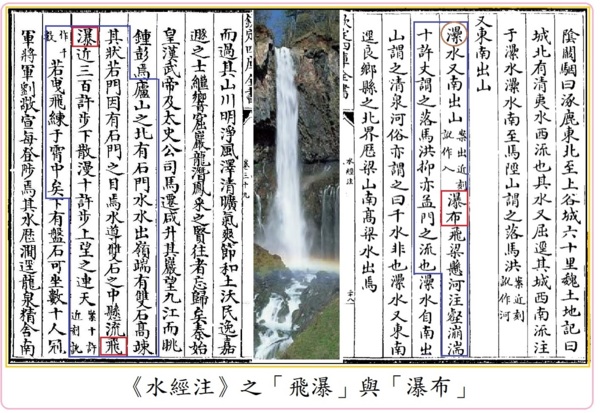 陰闞駰曰涿鹿東北至上谷城六十里魏土地記曰
城北有清夷水西流也其水又屈逕其城西南流注
于㶟水㶟水南至馬陘山謂之落馬洪案近刻訛作河
又東南出山
㶟水又南出山案出近刻訛作入瀑布飛梁懸河注壑漰湍
十許丈謂之落馬洪抑亦孟門之流也㶟水自南出
山謂之清泉河俗亦謂之曰干水非也㶟水又東南
逕良鄉縣之北界歷梁山南高梁水出焉
欽定四庫全書
水經注
十八
欽定四庫全書
卷三十九
而過其山川明淨風澤清曠氣爽節和土沃民逸嘉
遯之士繼響窟巖龍潛鳳采之賢往者忘歸矣秦始
皇漢武帝及太史公司馬遷咸升其巖望九江而眺
鍾彭焉廬山之北有石門水水出嶺端有雙石高竦
其狀若門因有石門之目焉水導雙石之中懸流飛
瀑近三百許步下散漫十許步上望之連天案十許近刻訛
作千數若曳飛練于霄中矣下有盤石可坐數十人冠
軍將軍劉敬宣每登陟焉其水歷澗逕龍泉精舍南
《水經注》之「飛瀑」與「瀑布」